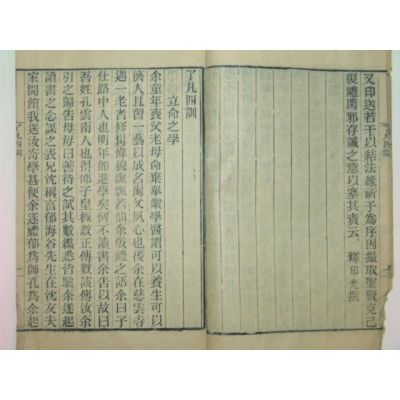 又印送若干以結法緣祈予爲序因撮取聖賢克己
復禮閑邪存誠之意以塞其責云。 釋印光撰
了凡四訓
立命之學
余童年喪父老母命棄舉業學醫謂可以養生可以
濟人且習一藝以成名爾父夙心也後余在慈雲寺
遇一老者修髯偉貌飄飄若仙余敬禮之語余曰子
仕路中人也明年即進學矣何不讀書余告以故曰
吾姓孔雲南人也得邵子皇極數正傳數該傳汝余
引之歸告母母曰善待之試其數纖悉皆驗余遂起
讀書之念謀之表兄沈稱言郁海谷先生在沈友夫
家開館我送汝寄學甚便余遂禮郁爲師孔爲余起
了凡四訓
一